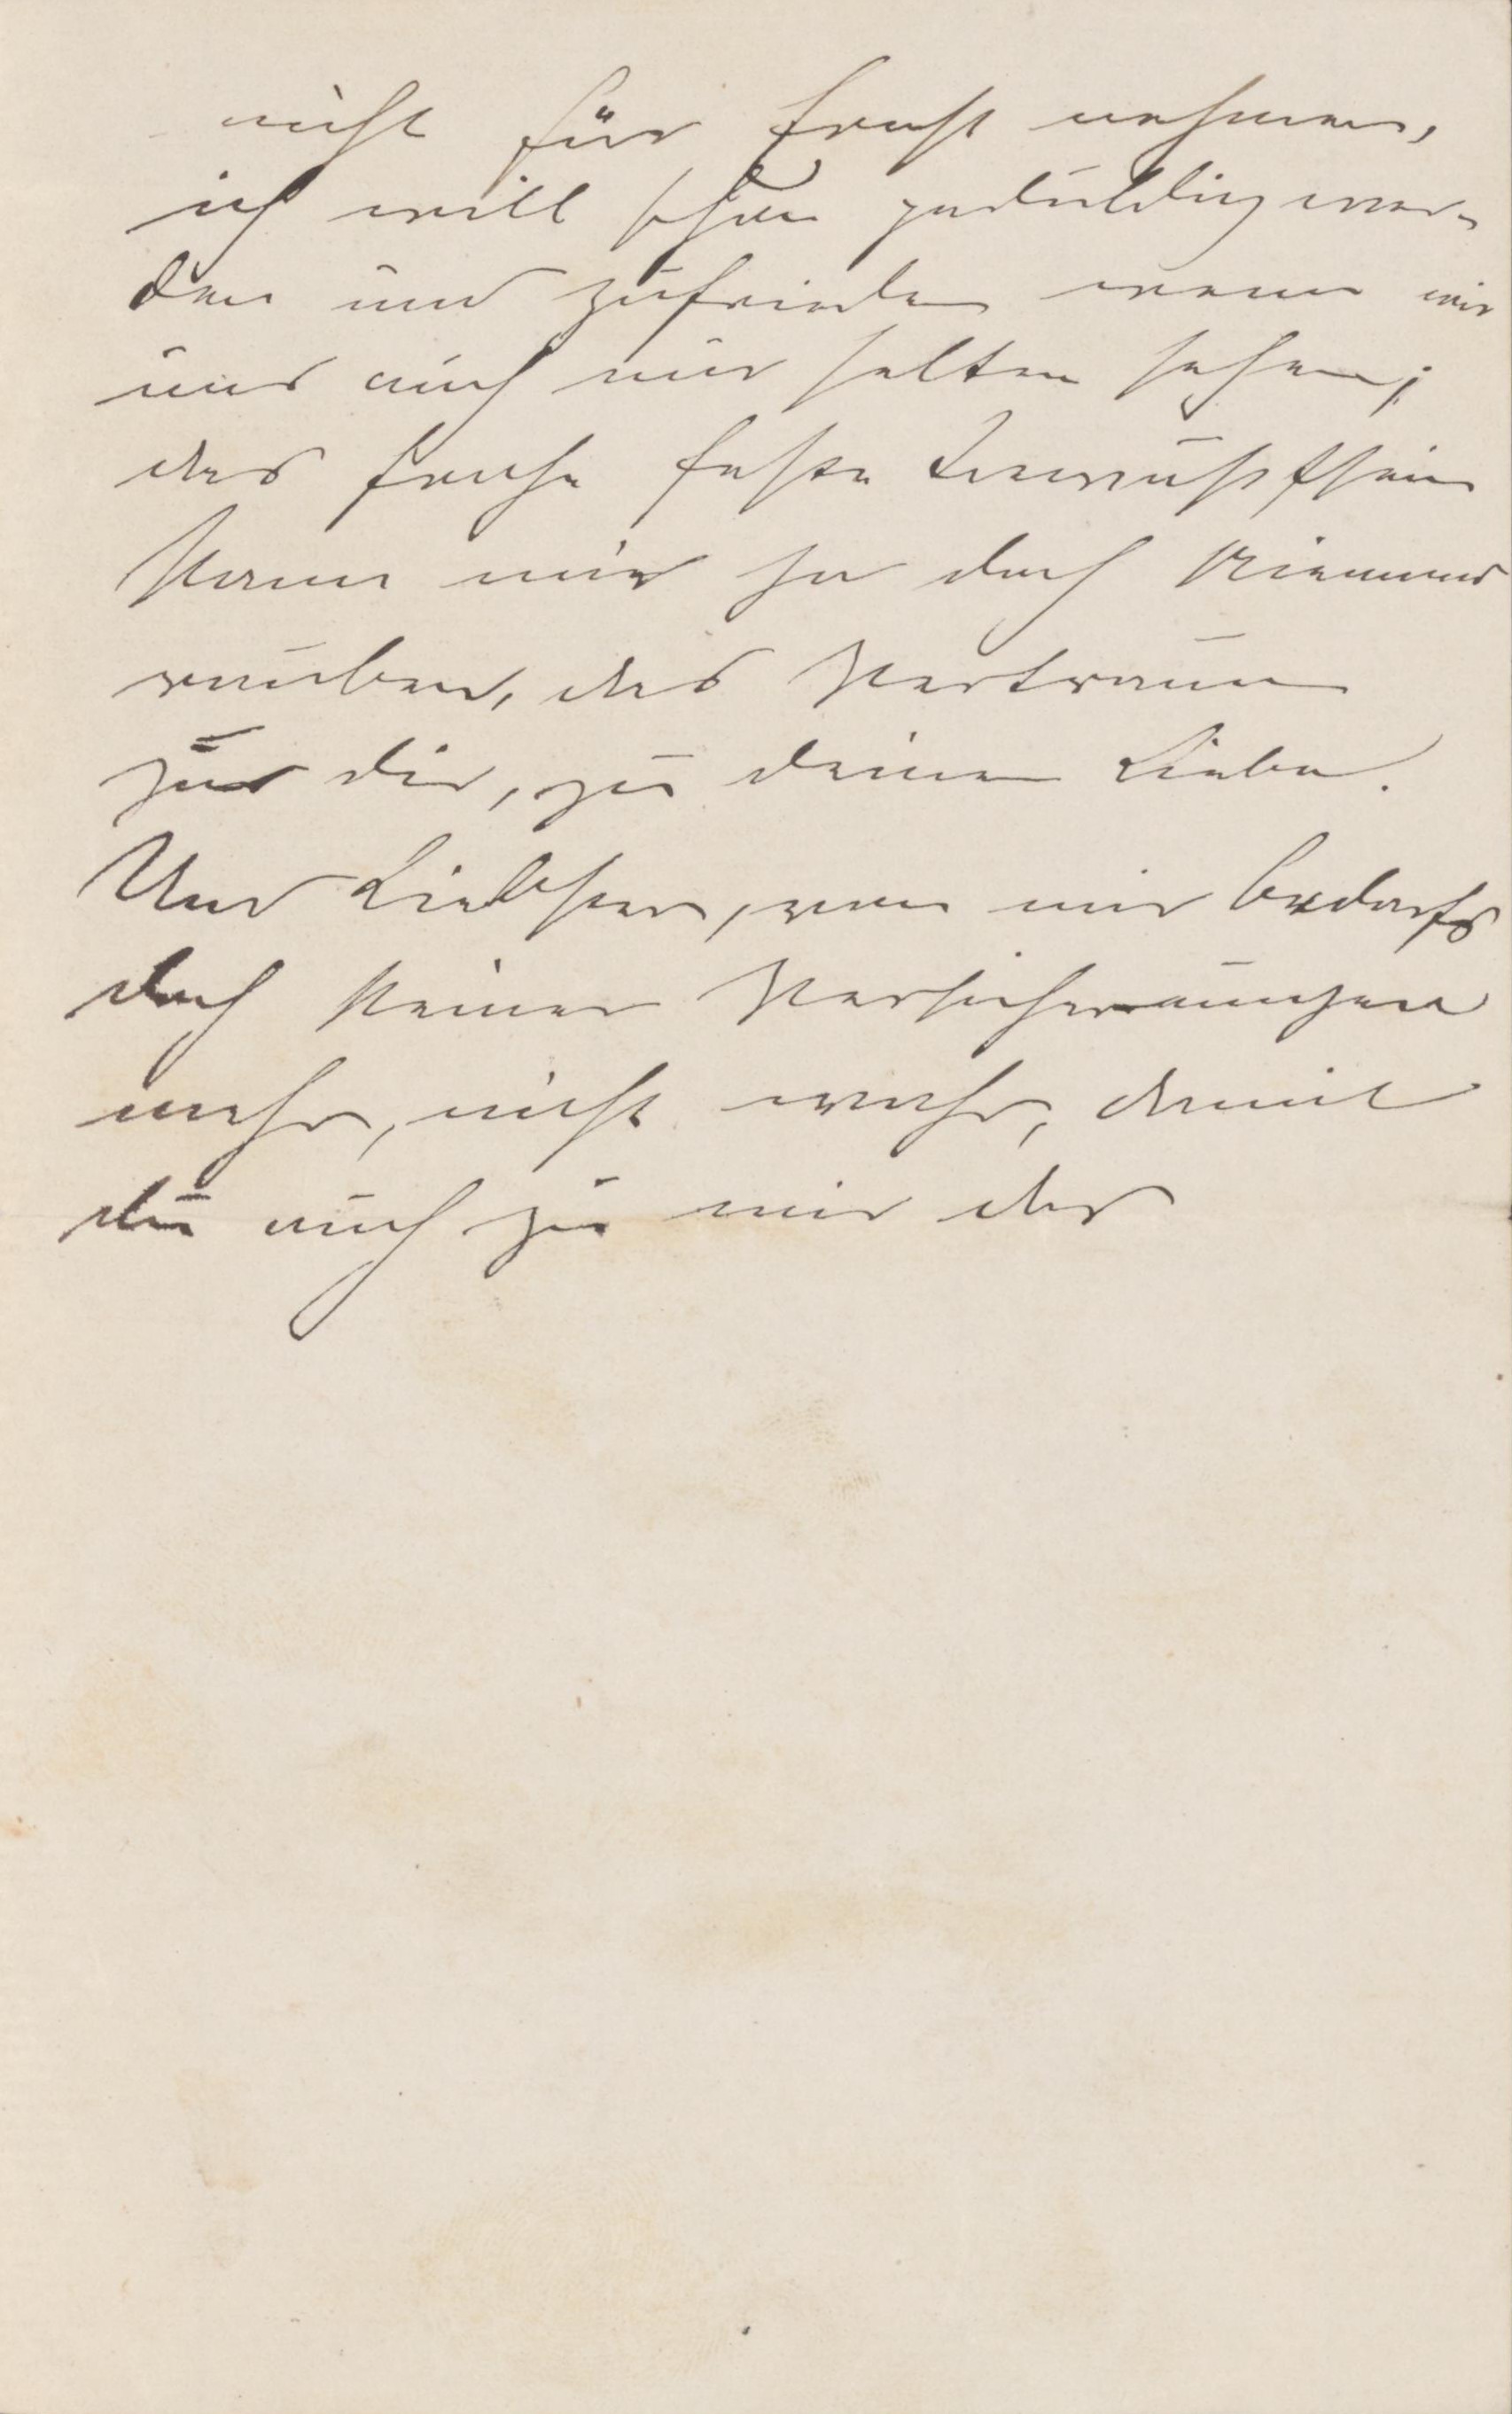 nicht für Ernst nehmen,
ich will schon geduldig wer-
den und zufrieden wenn wir
uns auch nur selten sehen;
das frohe feste Bewußtsein
kann mir ja doch Niemand
rauben, das Vertrauen
zu dir, zu deiner Liebe.
Und Liebster, von mir bedarfs
doch keiner Versicherungen
mehr, nicht wahr, damit
du auch zu mir das